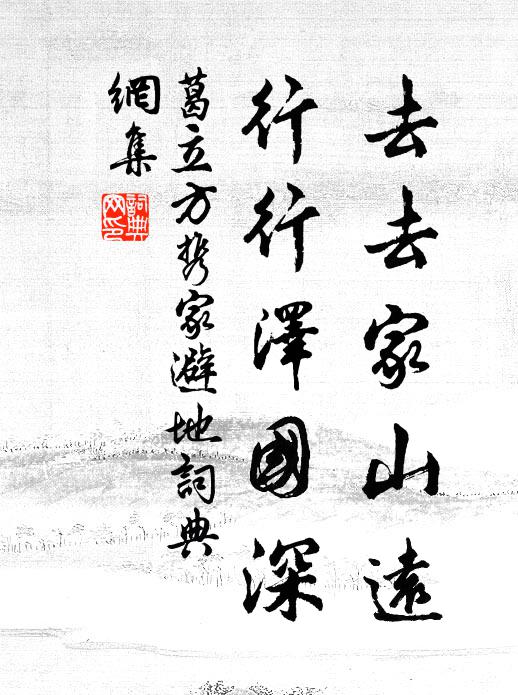 去去家山遠
行行澤國深
葛立方携家避地詞典
網集
詞典
网印